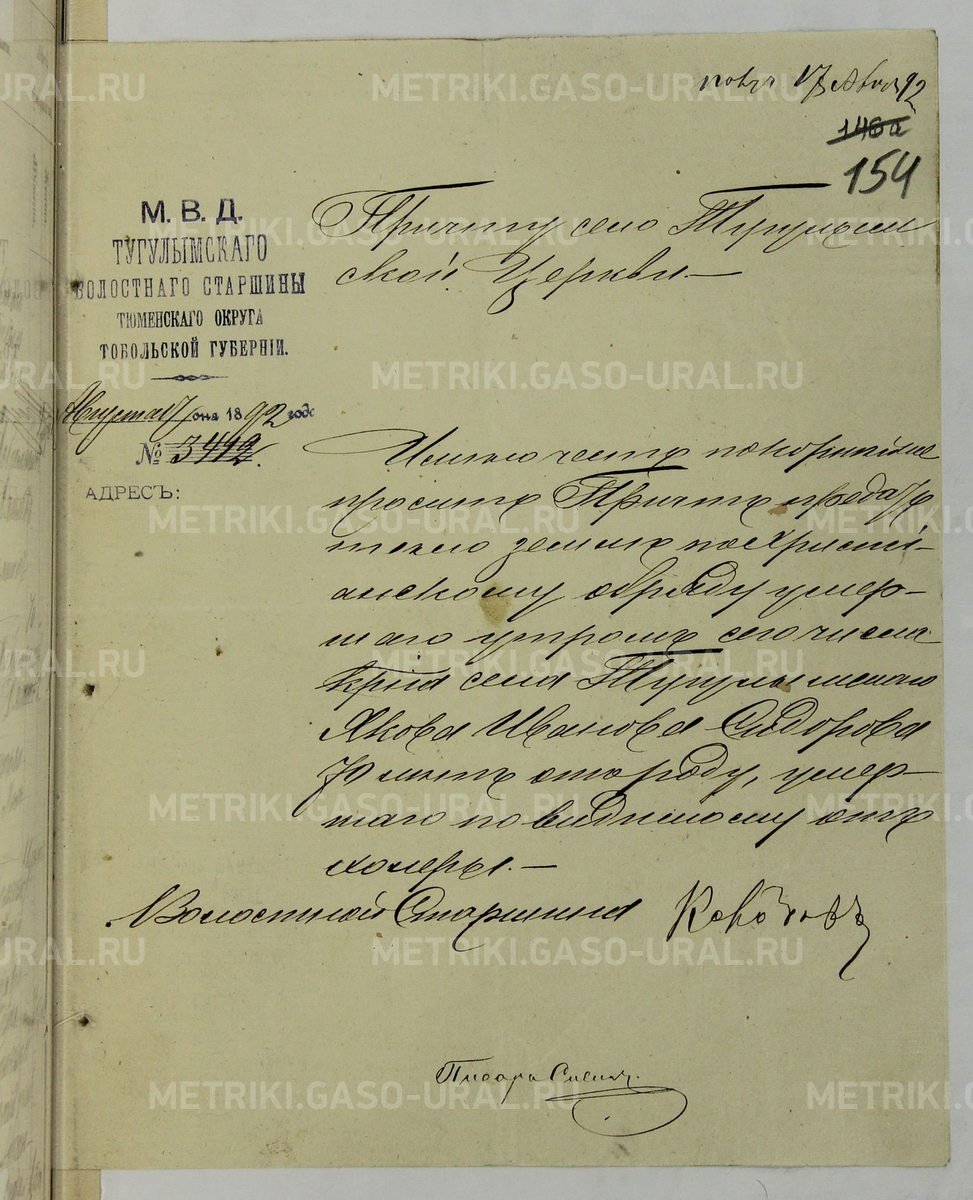 17 Авг 92
140а
154
М. В. Д.
ТУГУЛЫМСКАГО
ВОЛОСТНАГО СТАРШИНЫ
ТЮМЕНСКАГО ОКРУГА
ТОБОЛЬСКОЙ ГУБЕРНІИ.
Августа 17 дня 1892 года
№ 3412.
АДРЕСЪ:
Причту село Тугулым
ской Церкви —
Имѣю честь покорнѣйше
просить Причтъ предать
тѣло землѣ по Христі-
анскому обряду умер-
шаго утромъ сего числа
Кр-на села Тугулымскаго
Якова Иванова Сидорова
70 лѣтъ отъ роду, умер-
шаго по видимому отъ
холеры. —
Волостной Старшина
Писарь
METRIKI.GASO-URAL.RU